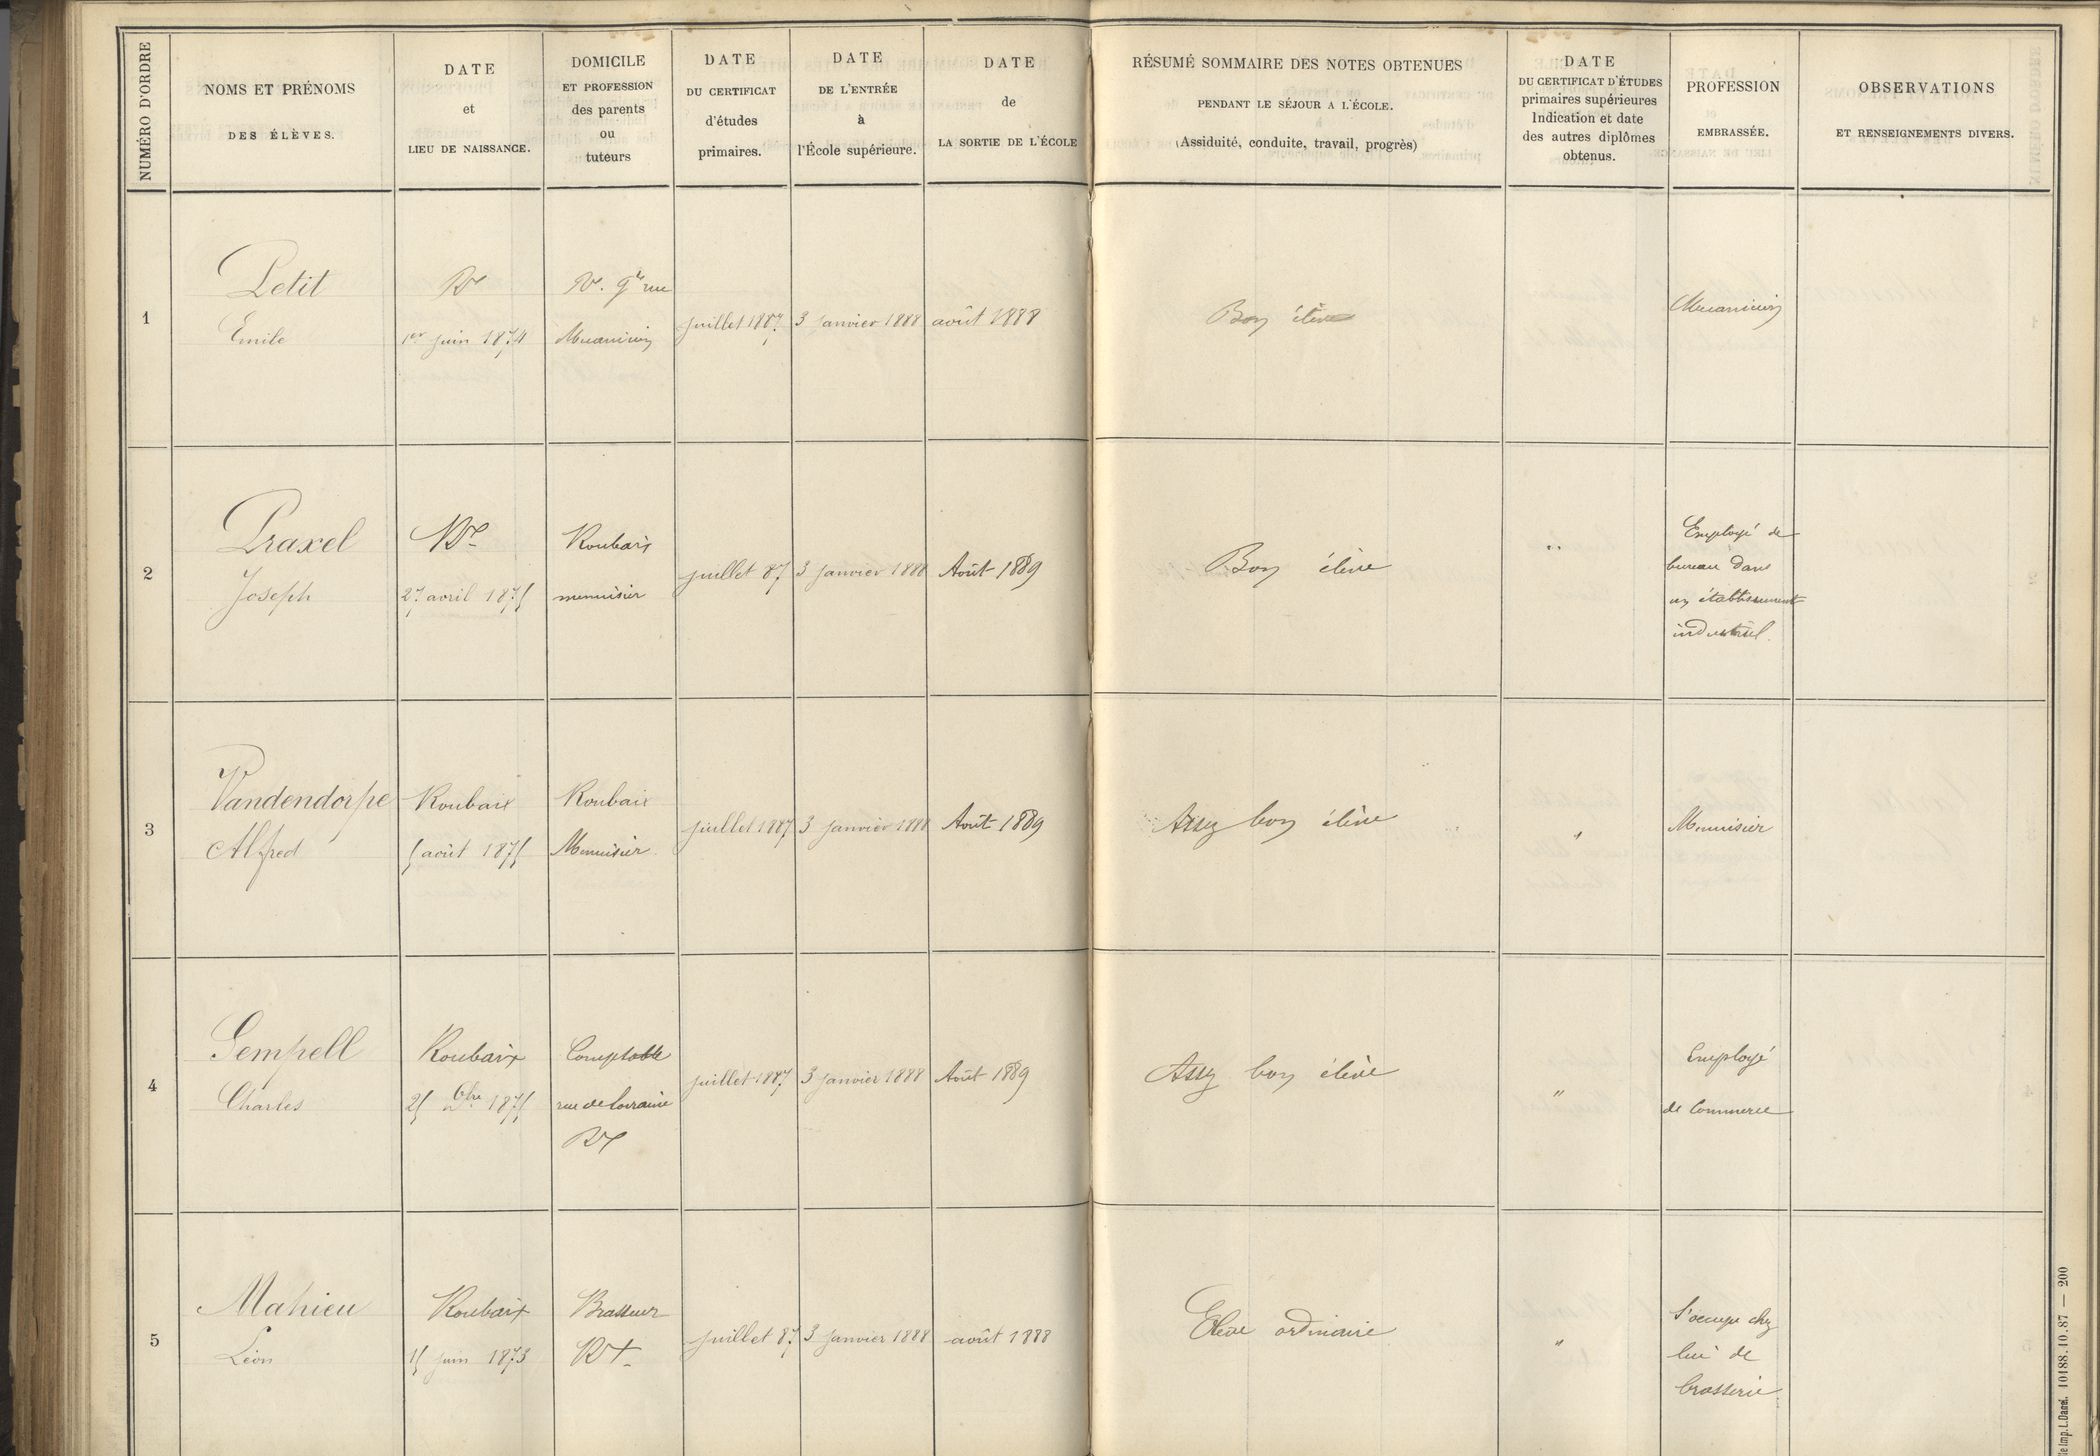 NUMÉRO D'ORDRE
NOMS ET PRÉNOMS
DES ÉLÈVES.
DATE
et
LIEU DE NAISSANCE.
DOMICILE
ET PROFESSION
des parents
ou
tuteurs
DATE
DU CERTIFICAT
d'études
primaires.
DATE
DE L'ENTRÉE
à
l'École supérieure.
DATE
de
LA SORTIE DE L'ÉCOLE
RÉSUMÉ SOMMAIRE DES NOTES OBTENUES
PENDANT LE SÉJOUR A L'ÉCOLE.
(Assiduité, conduite, travail, progrès)
DATE
DU CERTIFICAT D'ÉTUDES
primaires supérieures
Indication et date
des autres diplômes
obtenus.
PROFESSION
EMBRASSÉE.
OBSERVATIONS
ET RENSEIGNEMENTS DIVERS.
1
Petit
Emile
Rx
1er juin 1874
Rx. Gde rue
Mécanicien
juillet 1887
3 janvier 1888
août 1888
Bon élève
Mécanicien
2
Praxel
Joseph
Rx
27 avril 1875
Roubaix
menuisier
juillet 87
3 janvier 1888
Août 1889
Bon élève
"
Employé de
bureau dans
un établissement
industriel.
3
Vandendorpe
Alfred
Roubaix
5 août 1875
Roubaix
Menuisier
juillet 1887
3 janvier 1888
Août 1889
Assez bon élève
"
Menuisier
4
Gempell
Charles
Roubaix
25 Xbre 1875
Comptable
rue de Lorraine
Rx
juillet 1887
3 janvier 1888
Août 1889
Assez bon élève
"
Employé
de Commerce
5
Mahieu
Léon
Roubaix
15 juin 1873
Brasseur
Rx
juillet 87
3 janvier 1888
août 1888
Elève ordinaire
"
S'occupe chez
lui de
brasserie
Imp. L. Danel. 10188.10.87 — 200